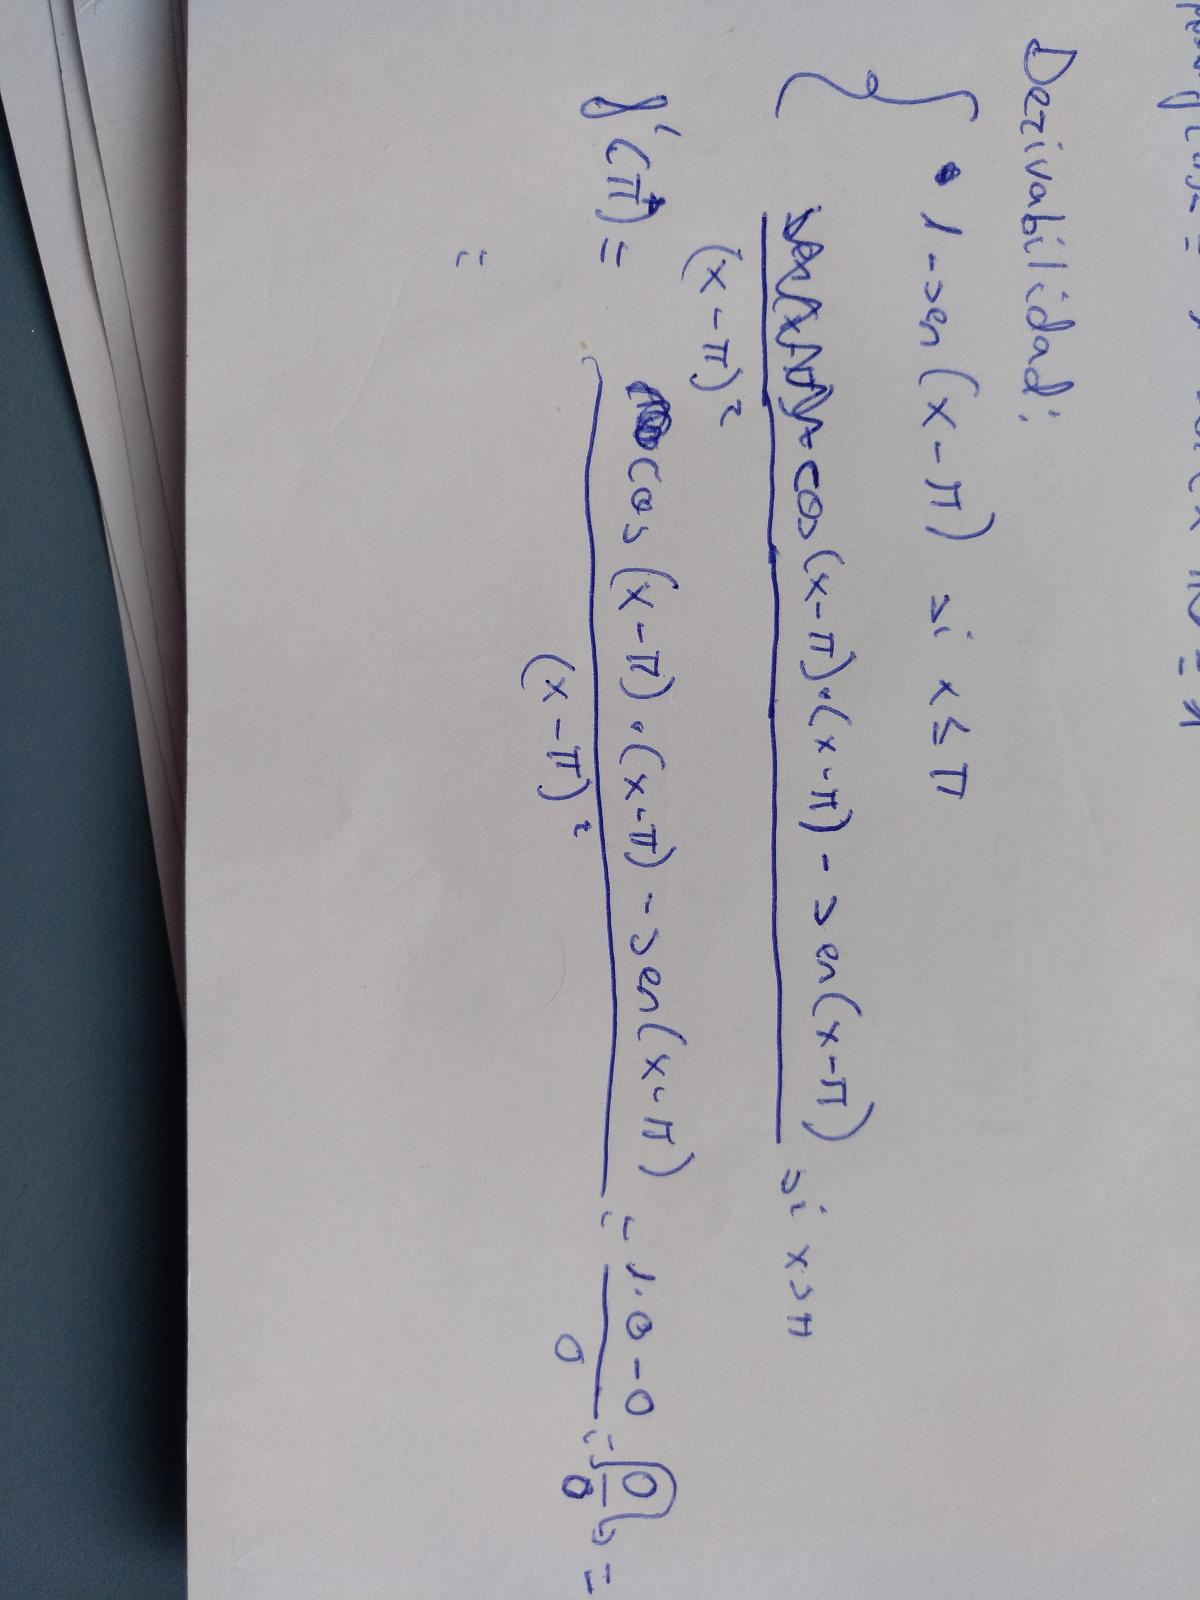 Derivabilidad:
1-sen(x-π) si x≤π
cos(x-π)·(x-π)-sen(x-π) si x>π
(x-π)²
f'(π⁺)= cos(x-π)·(x-π)-sen(x-π) = 1·0-0 = (0/0) =
(x-π)² 0
=